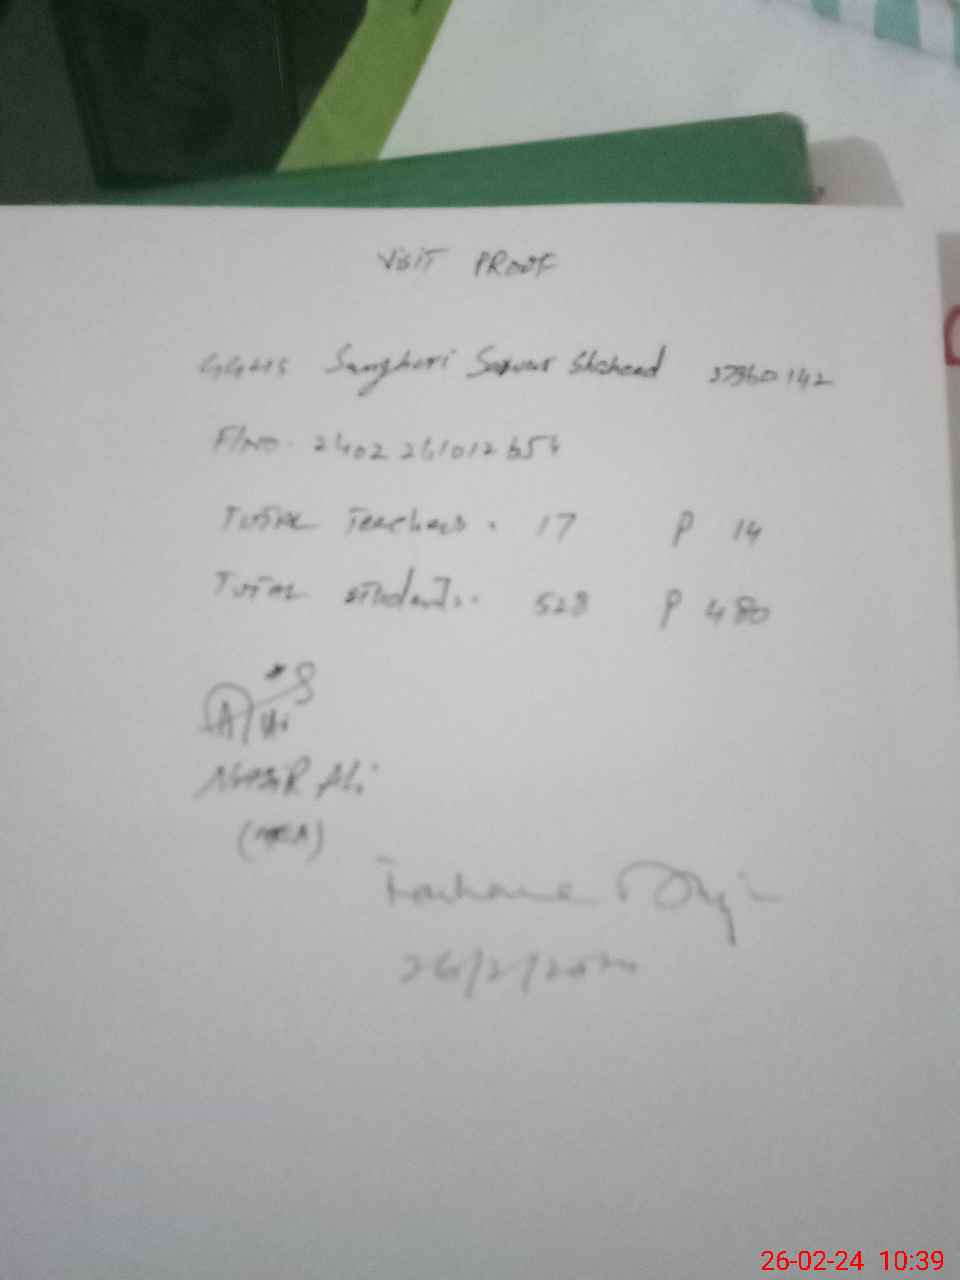 VISIT PROOF
GGHS Sanghori Sarwar Shaheed 37360142
F/NO. 2402261012654
TOTAL Teachers. 17 P 14
TOTAL students. 528 P 480
NASIR Ali
(MEA)
Farhana
26/2/2024
26-02-24 10:39